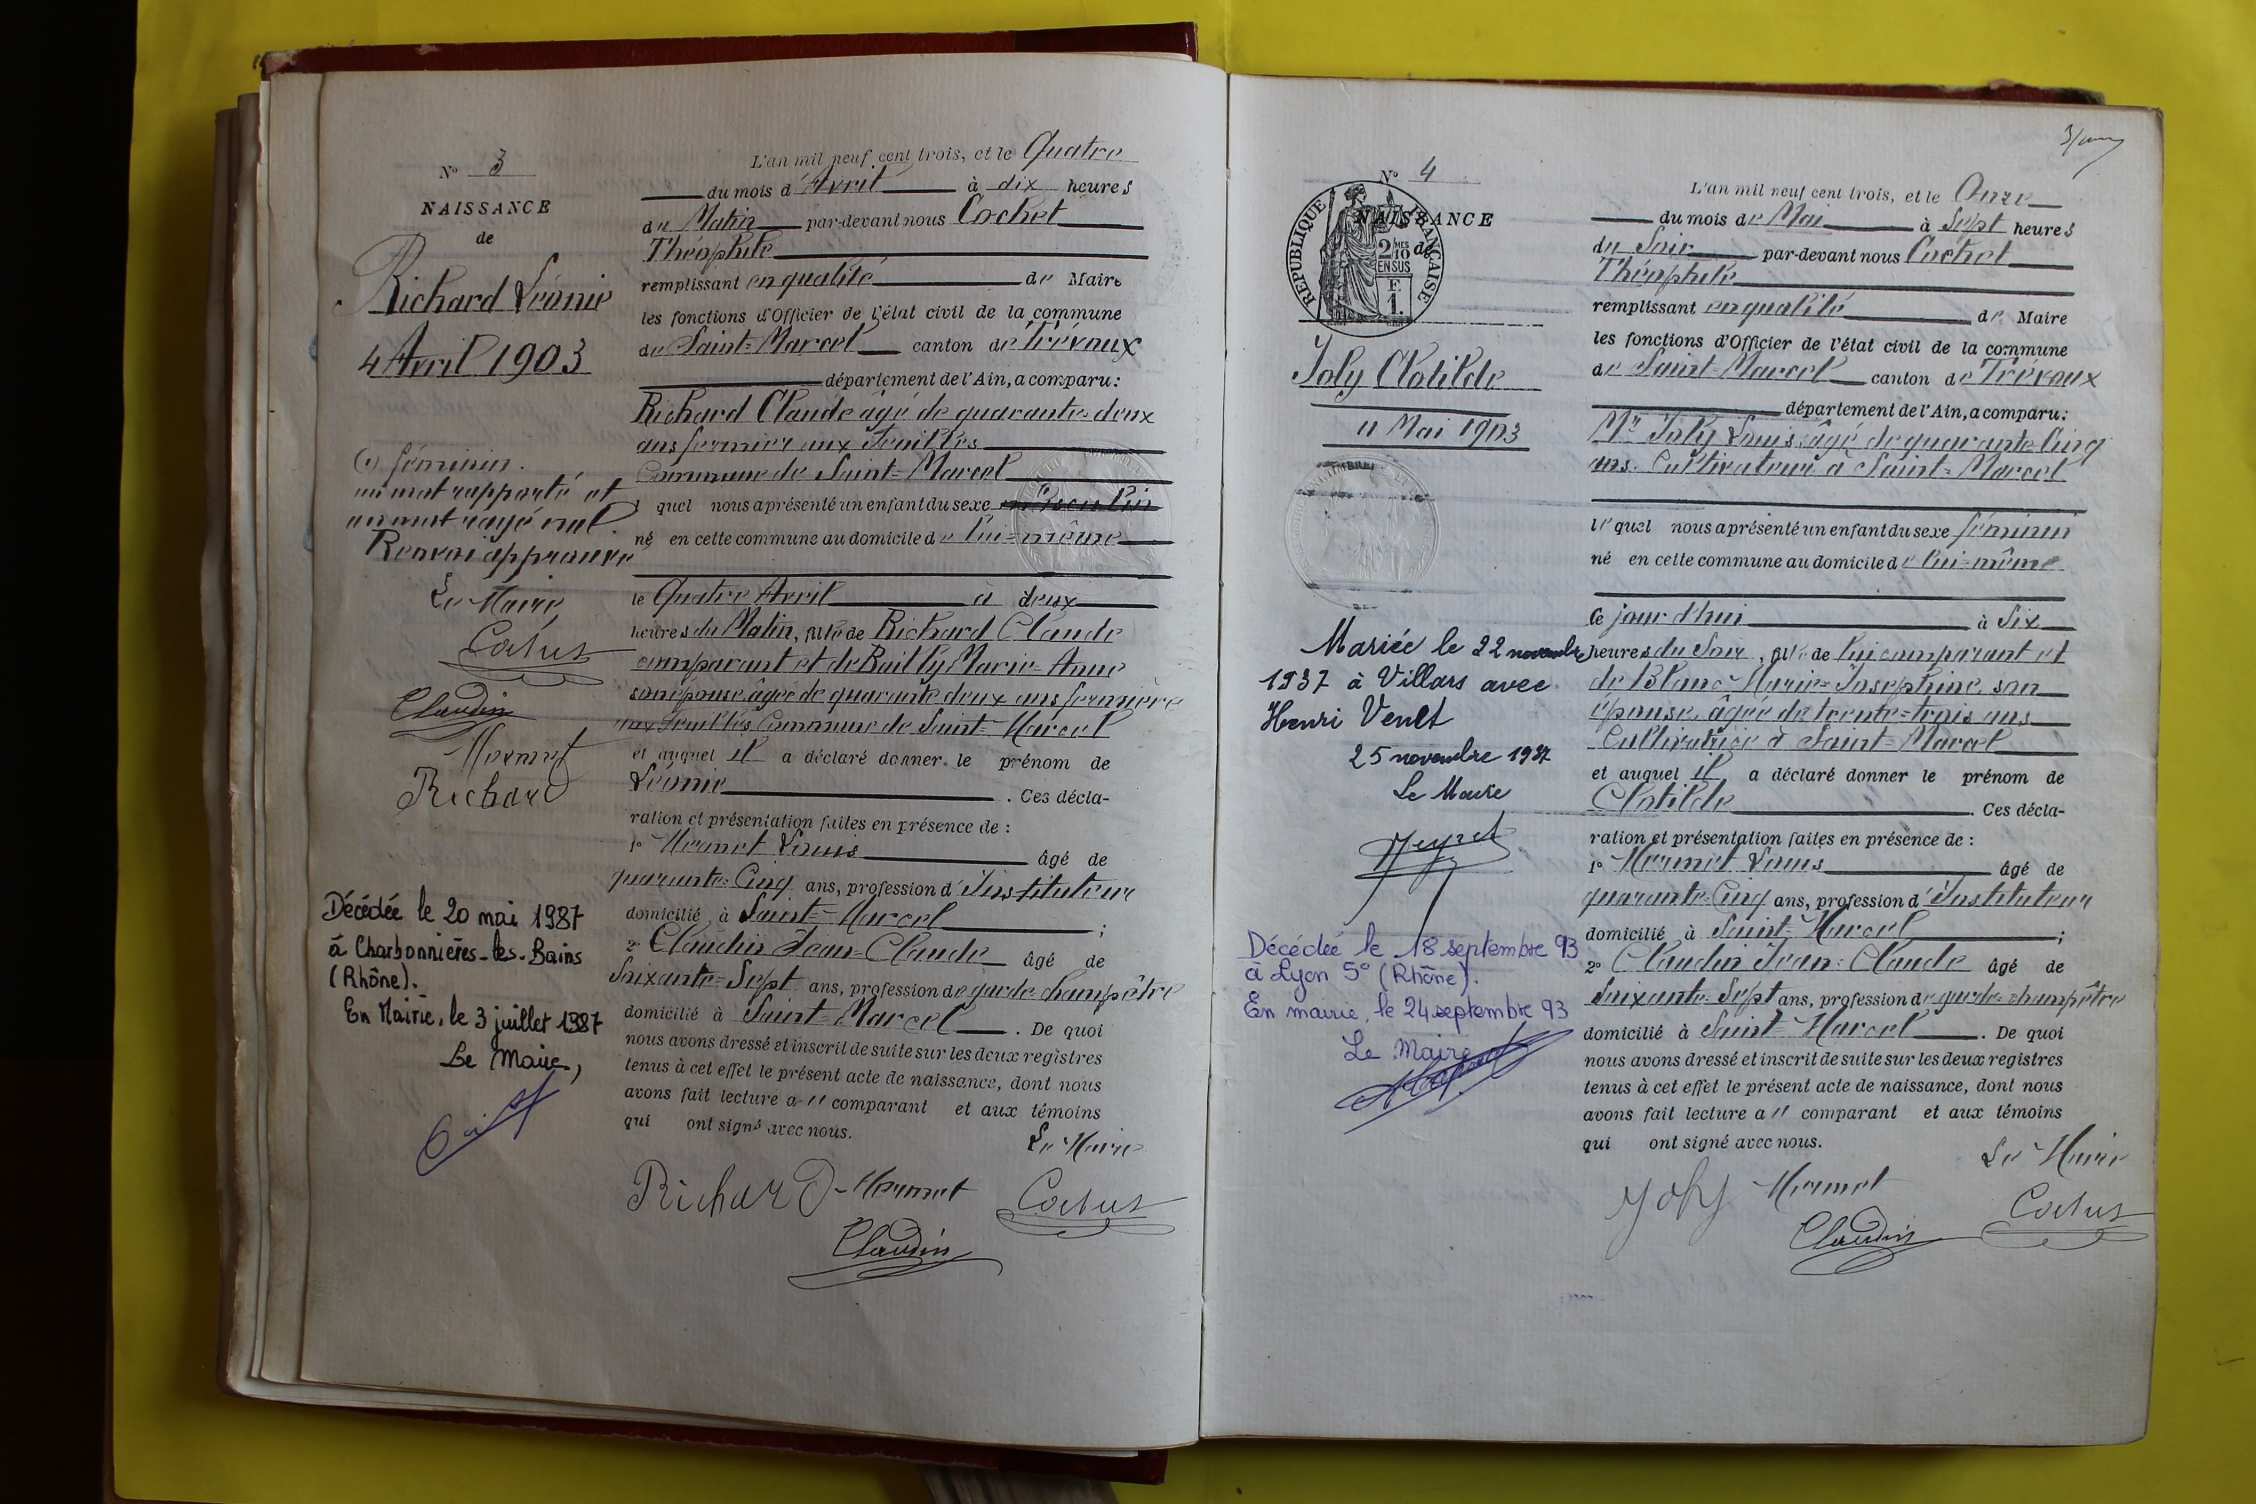 N° 3
NAISSANCE
de
Richard Léonie
4 Avril 1903
(1) féminin.
un mot rapporté et
un mot rayé nul
Renvoi approuvé
Le Maire,
Cochet
Claudin
Mermet
Richard
Décédée le 20 mai 1987
à Charbonnières-les-Bains
(Rhône).
En Mairie, le 3 juillet 1987
Le Maire,
L'an mil neuf cent trois, et le Quatre
du mois d'Avril à dix heures
du Matin par-devant nous Cochet
Théophile
remplissant en qualité de Maire
les fonctions d'Officier de l'état civil de la commune
de Saint-Marcel canton de Trévoux
département de l'Ain, a comparu:
Richard Claude âgé de quarante-deux
ans fermier aux
Commune de Saint-Marcel
quel nous a présenté un enfant du sexe masculin
né en cette commune au domicile de lui-même
le Quatre Avril à deux
heures du Matin, fille de Richard Claude
comparant et de Bailly Marie-Anne
son épouse âgée de quarante deux ans fermière
aux Commune de Saint-Marcel
et auquel il a déclaré donner le prénom de
Léonie. Ces décla-
ration et présentation faites en présence de :
1° Mermet Louis âgé de
quarante-Cinq ans, profession d'Instituteur
domicilié à Saint-Marcel ;
2° Claudin Jean-Claude âgé de
Soixante-Sept ans, profession de garde-champêtre
domicilié à Saint-Marcel. De quoi
nous avons dressé et inscrit de suite sur les deux registres
tenus à cet effet le présent acte de naissance, dont nous
avons fait lecture au comparant et aux témoins
qui ont signé avec nous.
Le Maire
Richard Mermet Cochet
Claudin
N° 4
NAISSANCE
de
RÉPUBLIQUE FRANÇAISE
2 MES
10
EN SUS
F
1.
Joly Clotilde
11 Mai 1903
Mariée le 22 novembre
1937 à Villars avec
Henri Veult
25 novembre 1937
Le Maire
Décédée le 18 septembre 93
à Lyon 5° (Rhône).
En mairie, le 24 septembre 93
Le Maire
L'an mil neuf cent trois, et le Onze
du mois de Mai à Sept heures
du Soir par-devant nous Cochet
Théophile
remplissant en qualité de Maire
les fonctions d'Officier de l'état civil de la commune
de Saint-Marcel canton de Trévoux
département de l'Ain, a comparu:
Mr Joly Louis âgé de quarante-Cinq
ans. Cultivateur à Saint-Marcel
le quel nous a présenté un enfant du sexe féminin
né en cette commune au domicile de lui-même
Ce jour d'hui à Six
heures du Soir, fille de lui comparant et
de Blanc Marie-Joséphine son
épouse, âgée de trente-trois ans
Cultivatrice à Saint-Marcel
et auquel il a déclaré donner le prénom de
Clotilde. Ces décla-
ration et présentation faites en présence de :
1° Mermet Louis âgé de
quarante-Cinq ans, profession d'Instituteur
domicilié à Saint-Marcel ;
2° Claudin Jean-Claude âgé de
Soixante-Sept ans, profession de garde-champêtre
domicilié à Saint-Marcel. De quoi
nous avons dressé et inscrit de suite sur les deux registres
tenus à cet effet le présent acte de naissance, dont nous
avons fait lecture au comparant et aux témoins
qui ont signé avec nous.
Le Maire
Joly Mermet Cochet
Claudin